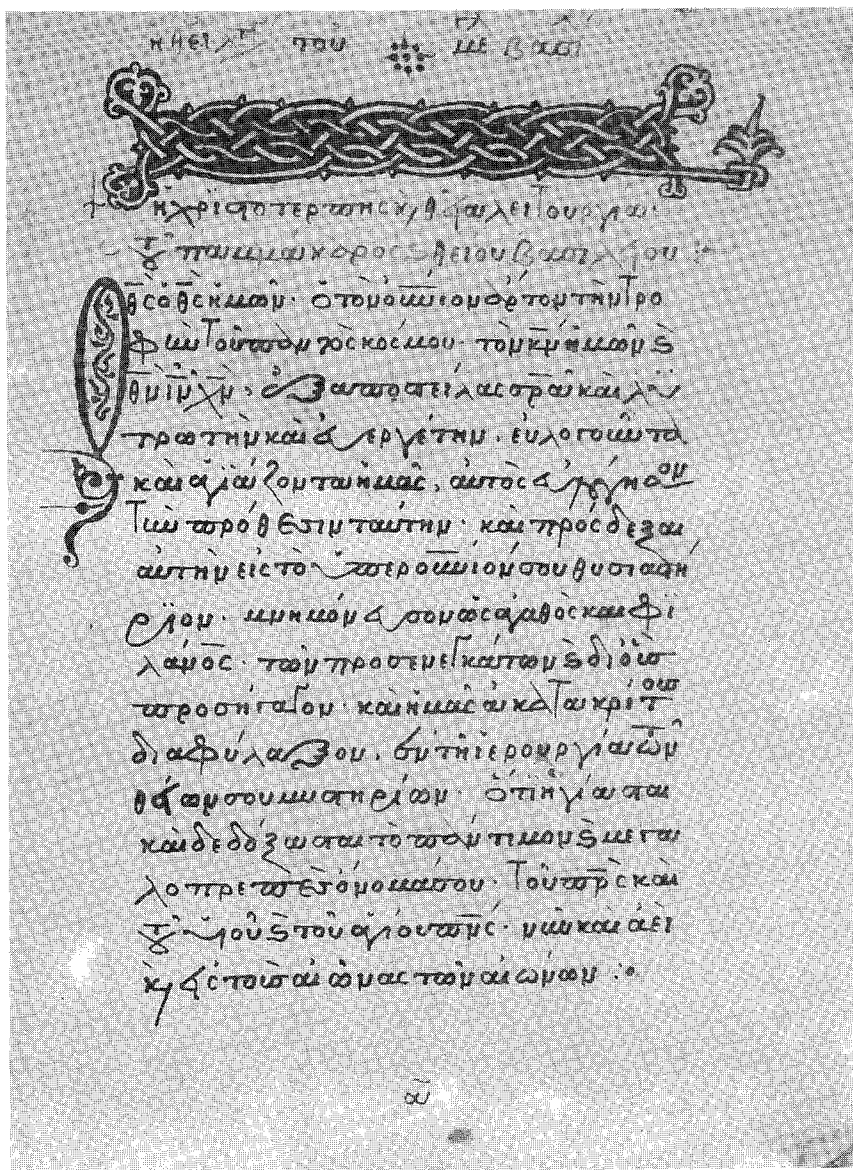 τοῦ βασι
ἡ χριστοτερπὴς ϗ θεία λειτουργία·
τοῦ παμμάκαρος ϗ θείου βασιλείου :-
Ὁ θ̅ς̅ ὁ θ̅ς̅ ἡμῶν· ὁ τὸν οὐ̅νιον ἄρτον τὴν τρο
φὴν τοῦ παντὸς κόσμου· τὸν κ̅ν̅ ἡμῶν ϗ
θ̅ν̅ ι̅ν̅ χ̅ν̅· ἐξαποστείλας σ̅ρ̅α̅ καὶ λυ
τρωτὴν καὶ εὐεργέτην, εὐλογοῦντα
καὶ ἁγϊάζοντα ἡμᾶς, αὐτὸς εὐλόγησον
τὴν πρόθεσιν ταύτην· καὶ πρόσδεξαι
αὐτὴν εἰς τὸ ὑπερου̅νιόν σου θυσιαστή
ριον· μνημόνευσον ὡς ἀγαθὸς καὶ φι
λα̅νο̅ς· τῶν προσενεγκάντων ϗ δι οὓς
προσήγαγον· καὶ ἡμᾶς ἀκατακρίτους
διαφύλαξον, ἐν τῇ ἱερουργία τῶν
θείων σου μυστηρίων· ὅτι ἡγίασται
καὶ δεδόξασται τὸ πάντιμον ϗ μεγα
λοπρεπὲς ὄνομά σου· τοῦ π̅ρ̅ς̅ καὶ
τοῦ υἱοῦ ϗ τοῦ ἁγίου π̅ν̅ς̅· νῦν καὶ ἀεὶ
ϗ εἰς τοὺς αἰῶνας τῶν αἰώνων :·